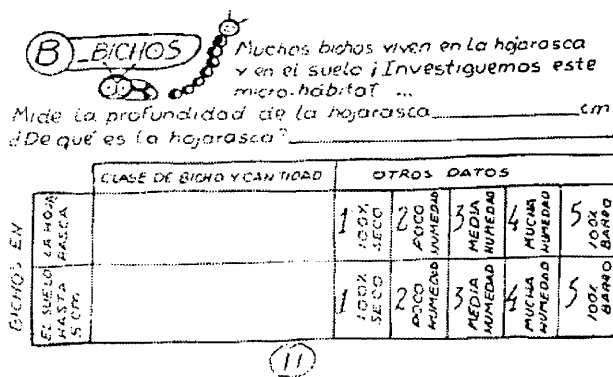 B _BICHOS
Muchos bichos viven en la hojarasca
y en el suelo ¡Investiguemos este
micro-hábitat ...
Mide la profundidad de la hojarasca____________cm
¿De qué es la hojarasca?____________
CLASE DE BICHO Y CANTIDAD OTROS DATOS
BICHOS EN
LA HOJARASCA
1 100% SECO 2 POCO HUMEDAD 3 MEDIA HUMEDAD 4 MUCHA HUMEDAD 5 100% BARRO
EL SUELO HASTA 5 cm
1 100% SECO 2 POCO HUMEDAD 3 MEDIA HUMEDAD 4 MUCHA HUMEDAD 5 100% BARRO
11